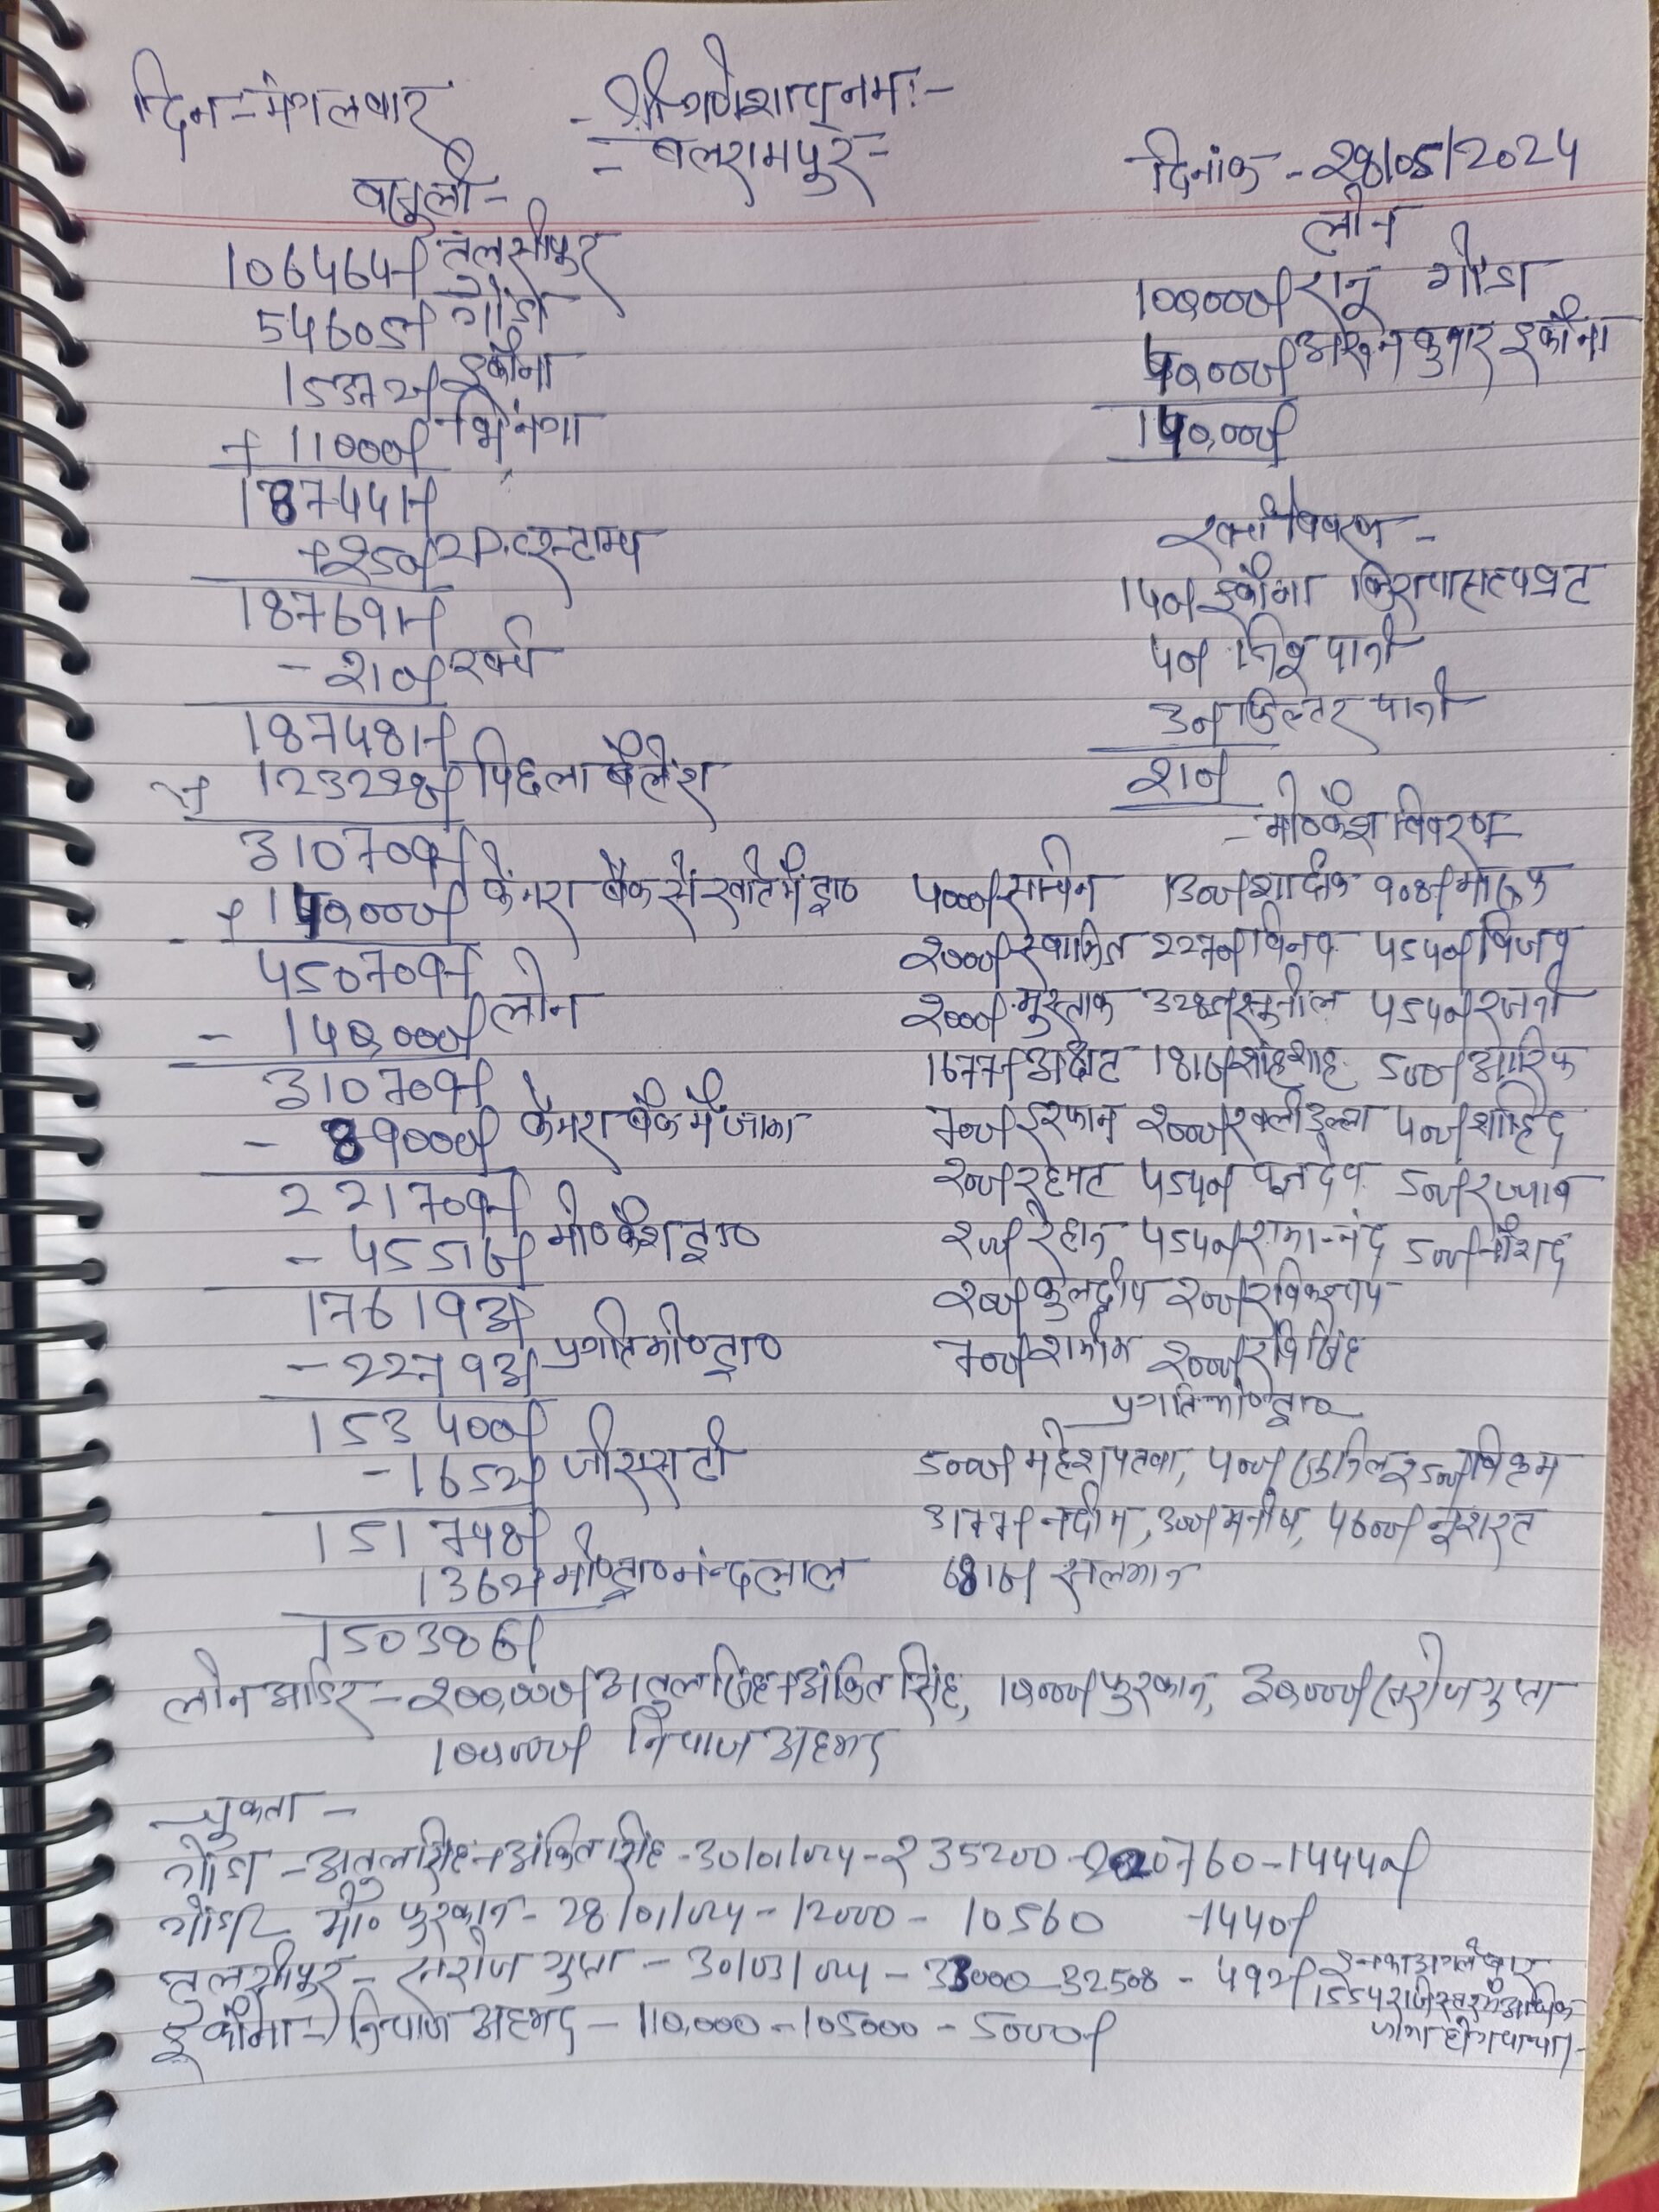 दिन - मंगलवार - श्री गणेशाय नमः -
- बलरामपुर -
दिनांक - 28/05/2024
वसुली -
लोन
106464/- तुलसीपुर
100,000/- रानू गोंडा
54605/- गोंडा
40,000/- कुमार इकौना
15372/- इकौना
140,000/-
+ 11000/- भिनगा
187441/-
+ 250/- स्टाम्प
खर्चा विवरण -
187691/-
140/- इकौना
- 210/- खर्च
40/- पानी
187481/-
30/- फिल्टर पानी
+ 123228/- पिछला बैलेंश
210/-
310709/-
- मो० कैश विवरण -
+ 140,000/- केनरा बैंक से खाते में ट्रा०
4000/- सचिन 1300/- 908/-
450709/-
2000/- 2270/- विनय 4540/- विजय
- 140,000/- लोन
2000/- मुस्ताक 3285/- सुनील 4540/- रजनी
310709/-
1677/- 1816/- शहंशाह 500/- आरिफ
- 89000/- केनरा बैंक में जमा
700/- इरफान 2000/- खलीउल्ला 400/- शाहिद
221709/-
200/- रहमत 4540/- 500/-
- 45516/- मो० कैश ट्रा०
200/- रेहान 4540/- रामानंद 500/- नौशाद
176193/-
200/- कुलदीप 200/- रवि कश्यप
- 22793/- प्रगति मो० ट्रा०
700/- शमीम 2000/- रवि सिंह
153400/-
प्रगति मो० ट्रा०
- 1652/- जीएसटी
5000/- महेश पटवा, 400/- 2500/- विक्रम
151748/-
3177/- नदीम, 300/- मनीष, 4600/- नुशरत
1362/- मो० ट्रा० नन्दलाल
6816/- सलमान
150386/-
लोन आर्डर - 200,000/- अतुल सिंह + अंकित सिंह, 10,000/- फुरकान, 30,000/- सरोज गुप्ता
100,000/- नियाज अहमद
चुकता -
गोंडा - अतुल सिंह + अंकित सिंह - 30/01/024 - 235200 - 220760 - 14440/-
गोंडा - मो० फुरकान - 28/01/024 - 12000 - 10560 - 1440/-
तुलसीपुर - सरोज गुप्ता - 30/03/024 - 33000 - 32508 - 492/-
इकौना - नियाज अहमद - 110,000 - 105000 - 5000/-